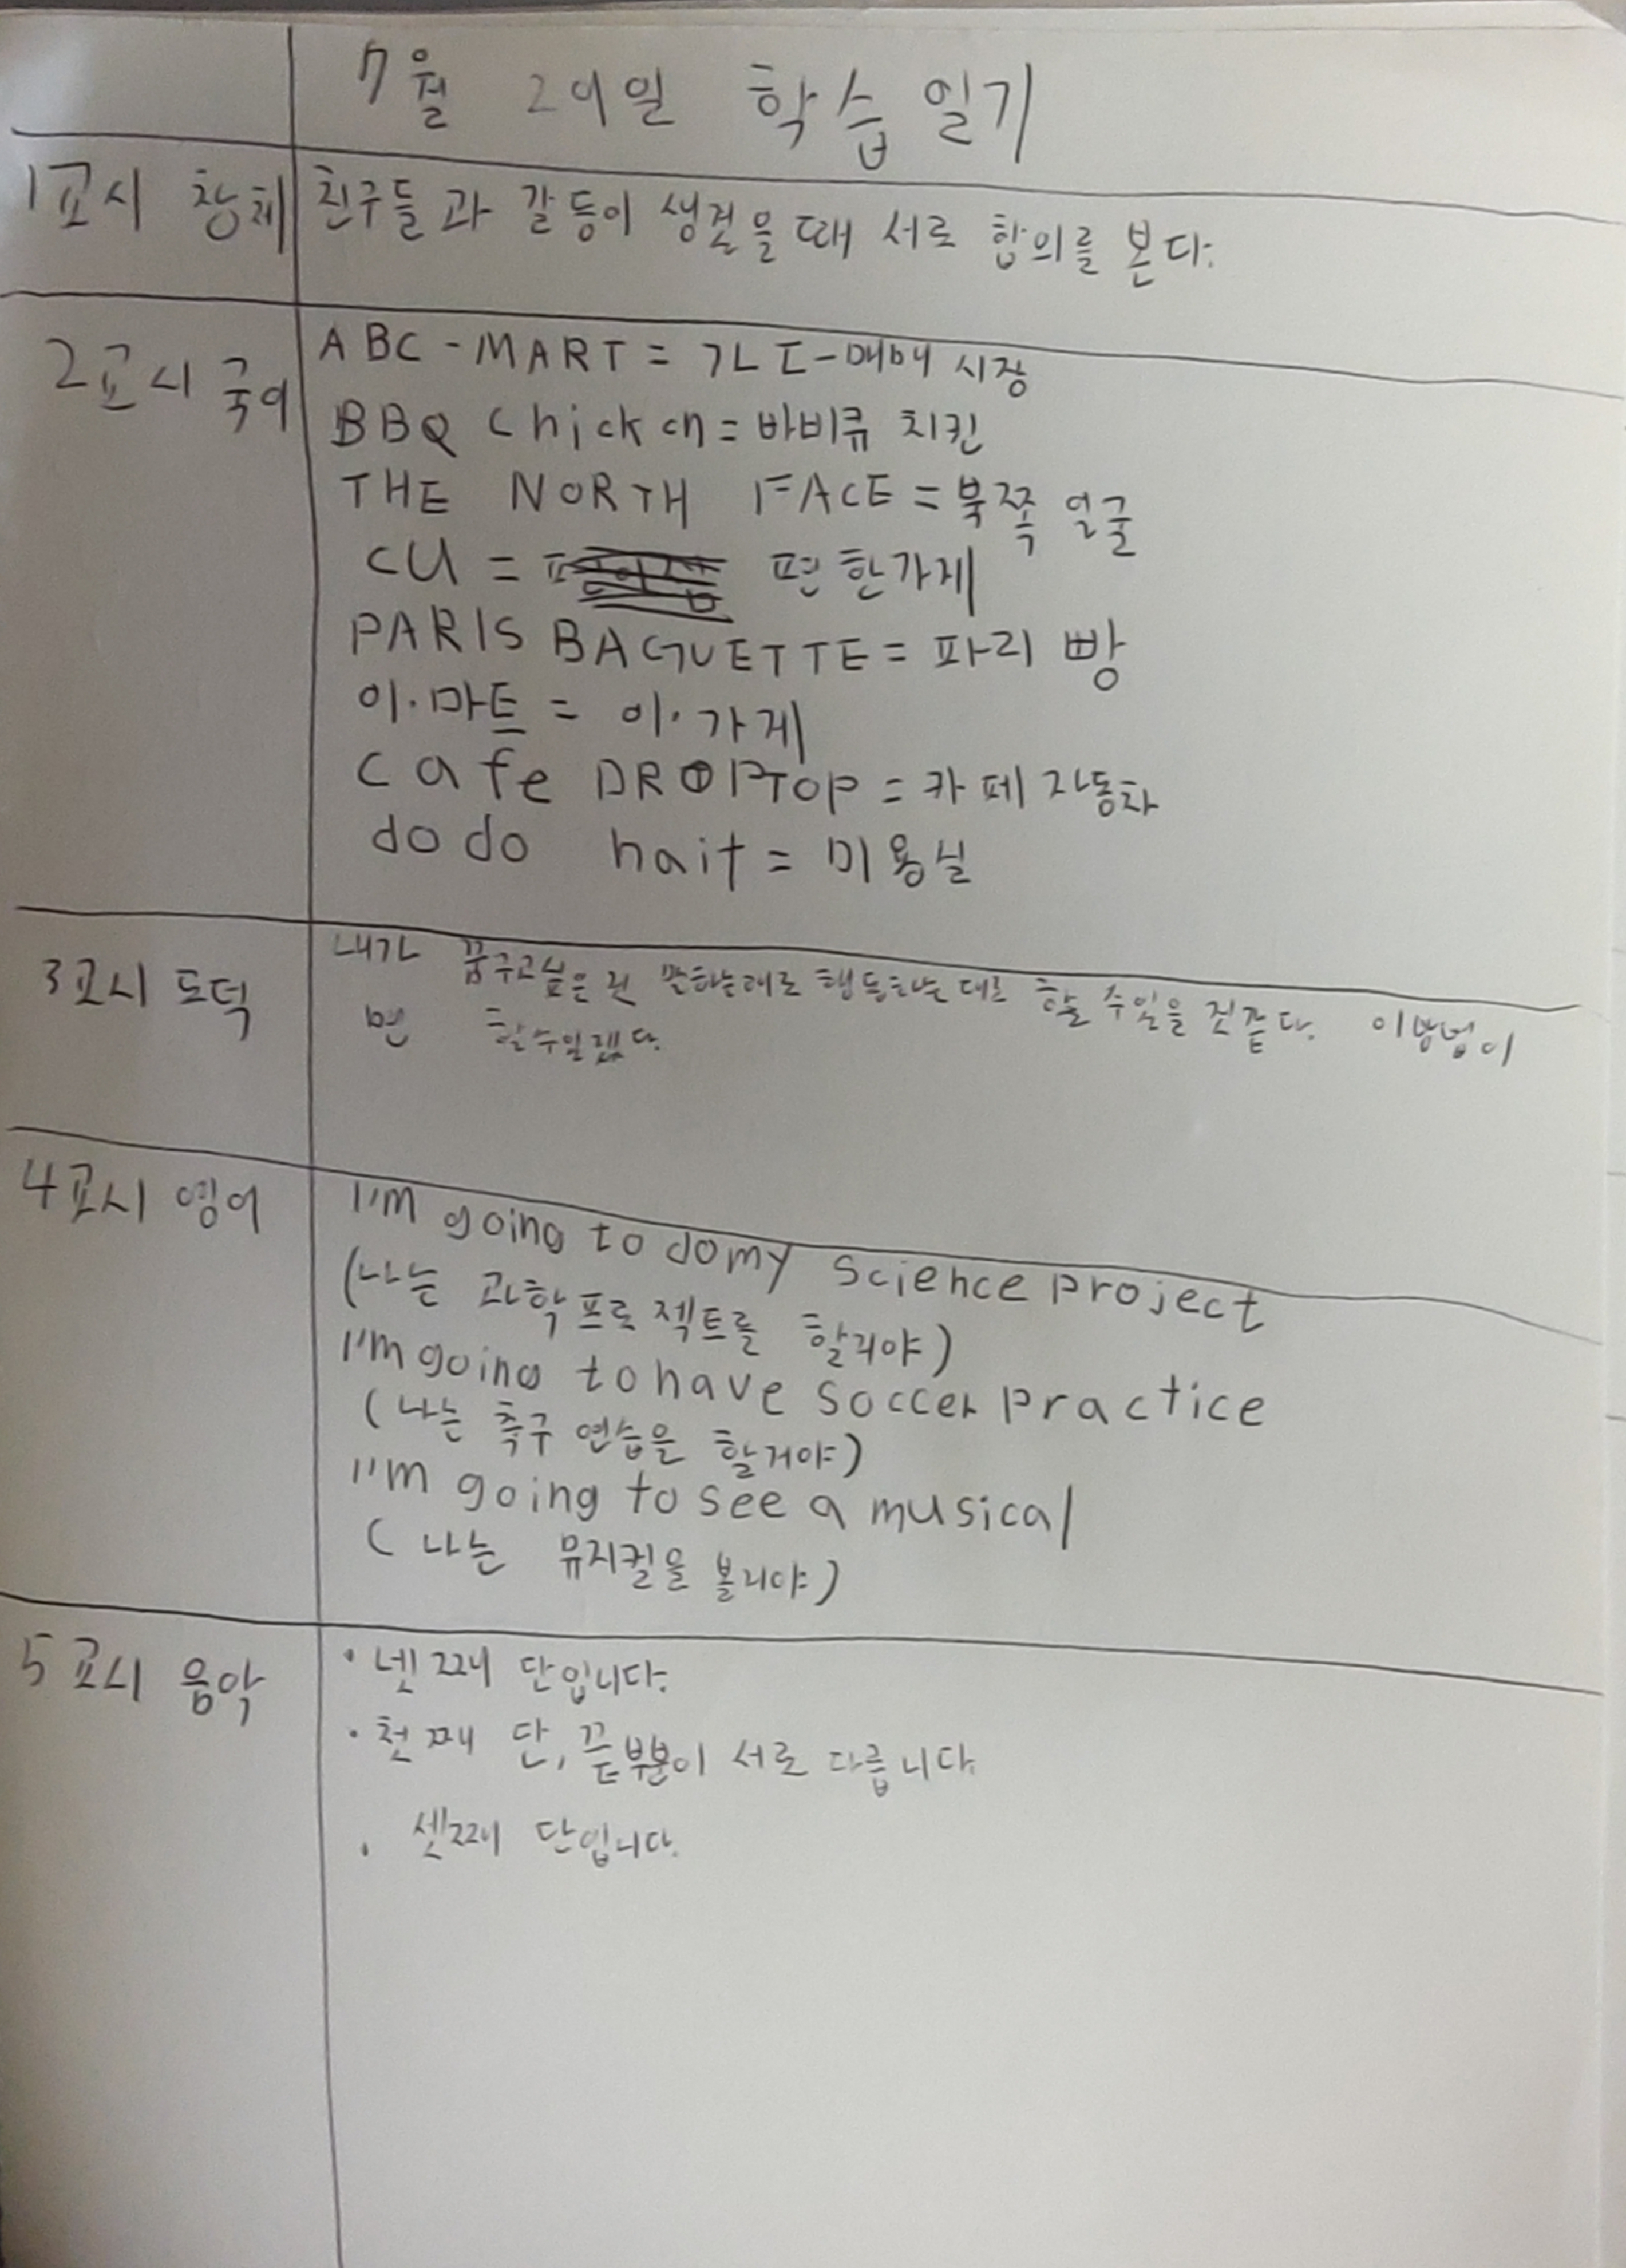 7월 29일 학습 일기
1교시 창체
친구들과 갈등이 생겼을때 서로 합의를 본다.
2교시 국어
ABC-MART = ㄱㄴㄷ-매매 시장
BBQ Chicken = 바비큐 치킨
THE NORTH FACE = 북쪽 얼굴
CU = 편한가게
PARIS BAGUETTE = 파리 빵
이·마트 = 이·가게
cafe DROPTOP = 카페 자동차
dodo hait = 미용실
3교시 도덕
내가 꿈꾸고싶은 건 말하는대로 행동하는 대로 할 수있을 것같다. 이방법이
면 할수있겠다.
4교시 영어
I'm going to do my science project
(나는 과학프로젝트를 할거야)
I'm going to have soccer practice
(나는 축구 연습을 할거야)
I'm going to see a musical
(나는 뮤지컬을 볼거야)
5교시 음악
· 넷째 단입니다.
· 첫째 단, 끝부분이 서로 다릅니다
· 셋째 단입니다.